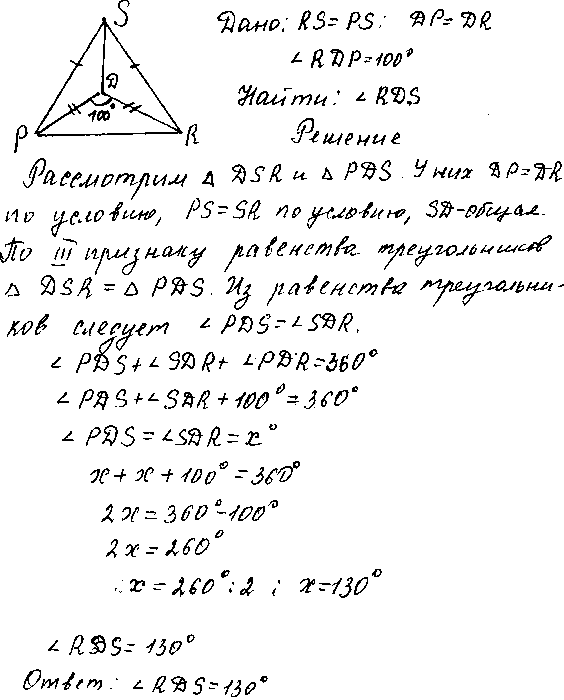 S
D
100°
P
R
Дано: RS=PS; DP=DR
∠RDP=100°
Найти: ∠RDS
Решение
Рассмотрим △ DSR и △ PDS. У них DP=DR
по условию, PS=SR по условию, SD-общая.
По III признаку равенства треугольников
△ DSR = △ PDS. Из равенства треугольни-
ков следует ∠PDS=∠SDR.
∠PDS+∠SDR+ ∠PDR=360°
∠PDS+∠SDR+100°=360°
∠PDS=∠SDR=x°
x+x+100°=360°
2x=360°-100°
2x=260°
x=260°:2 ; x=130°
∠RDS=130°
Ответ: ∠RDS=130°